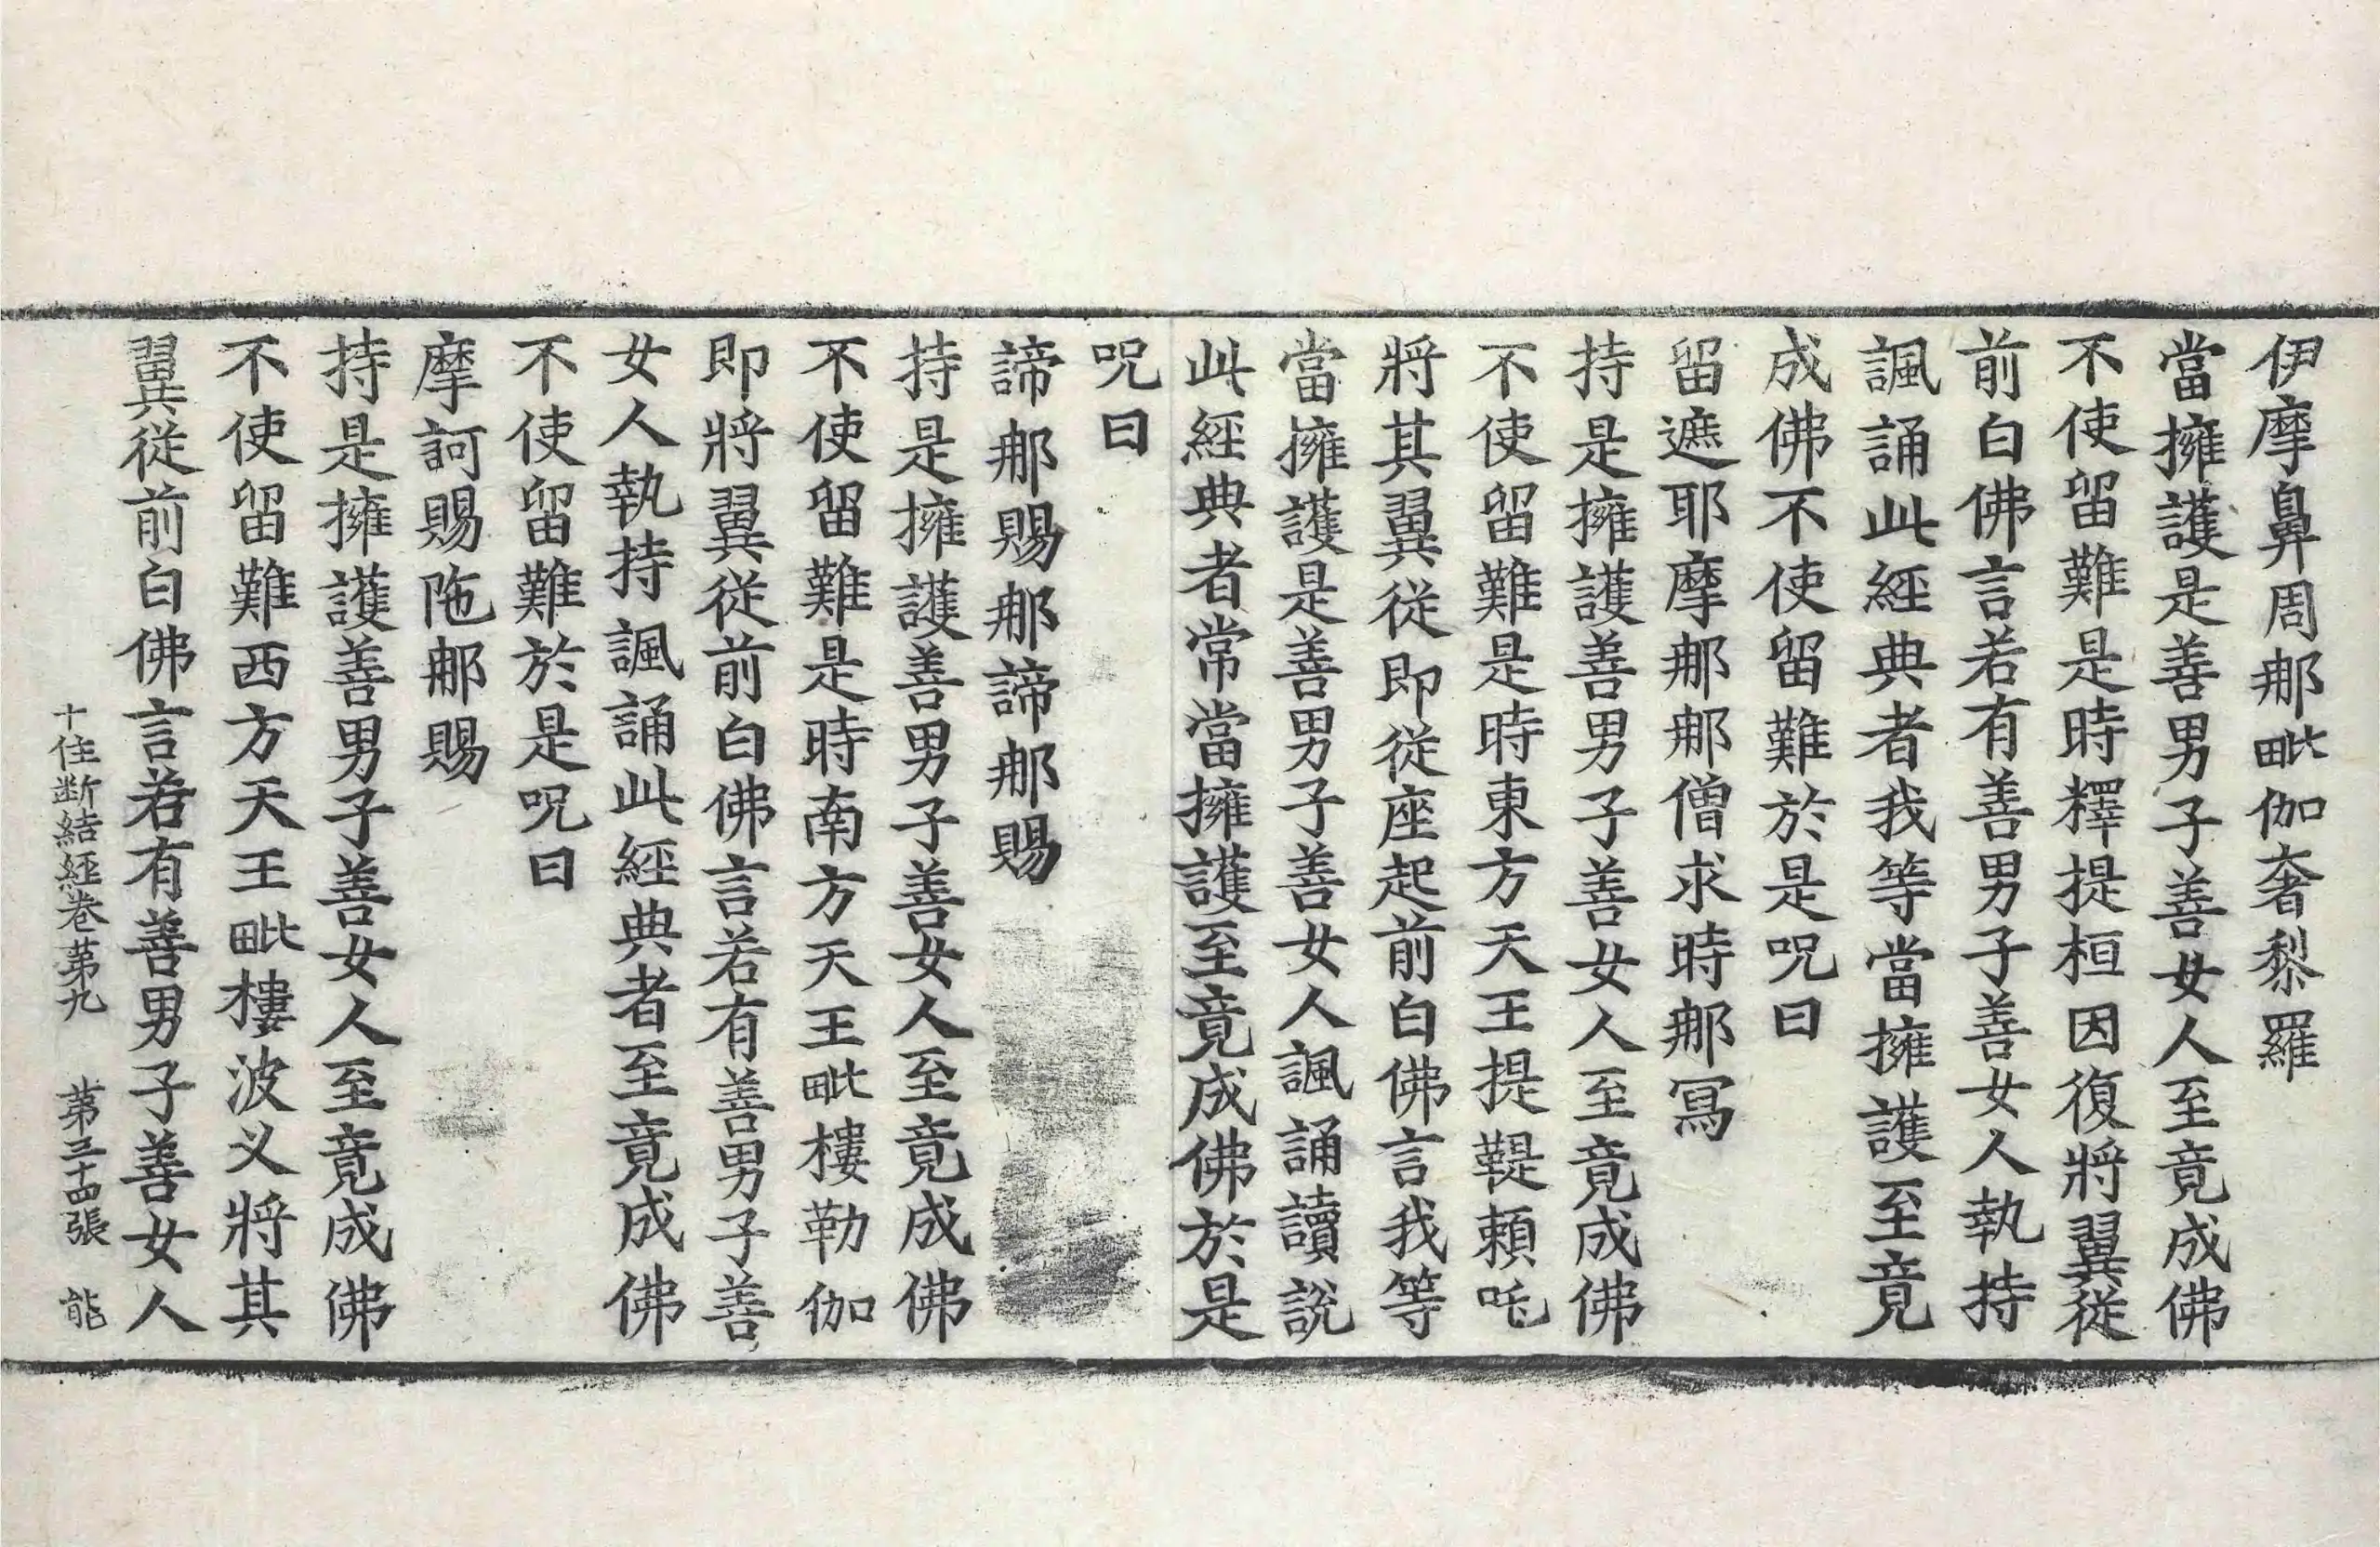 伊摩鼻周那毗伽奢黎羅
當擁護是善男子善女人至竟成佛
不使留難是時釋提桓因復將翼從
前白佛言若有善男子善女人執持
諷誦此經典者我等當擁護至竟
成佛不使留難於是呪曰
留遮耶摩那那僧求時那冩
持是擁護善男子善女人至竟成佛
不使留難是時東方天王提鞮頼吒
將其翼從即從座起前白佛言我等
當擁護是善男子善女人諷誦讀說
此經典者常當擁護至竟成佛於是
呪曰
諦那賜那諦那賜
持是擁護善男子善女人至竟成佛
不使留難是時南方天王毗樓勒伽
即將翼從前白佛言若有善男子善
女人執持諷誦此經典者至竟成佛
不使留難於是呪曰
摩訶賜陁那賜
持是擁護善男子善女人至竟成佛
不使留難西方天王毗樓波叉將其
翼從前白佛言若有善男子善女人
十住断結經卷第九 第三十四張 能